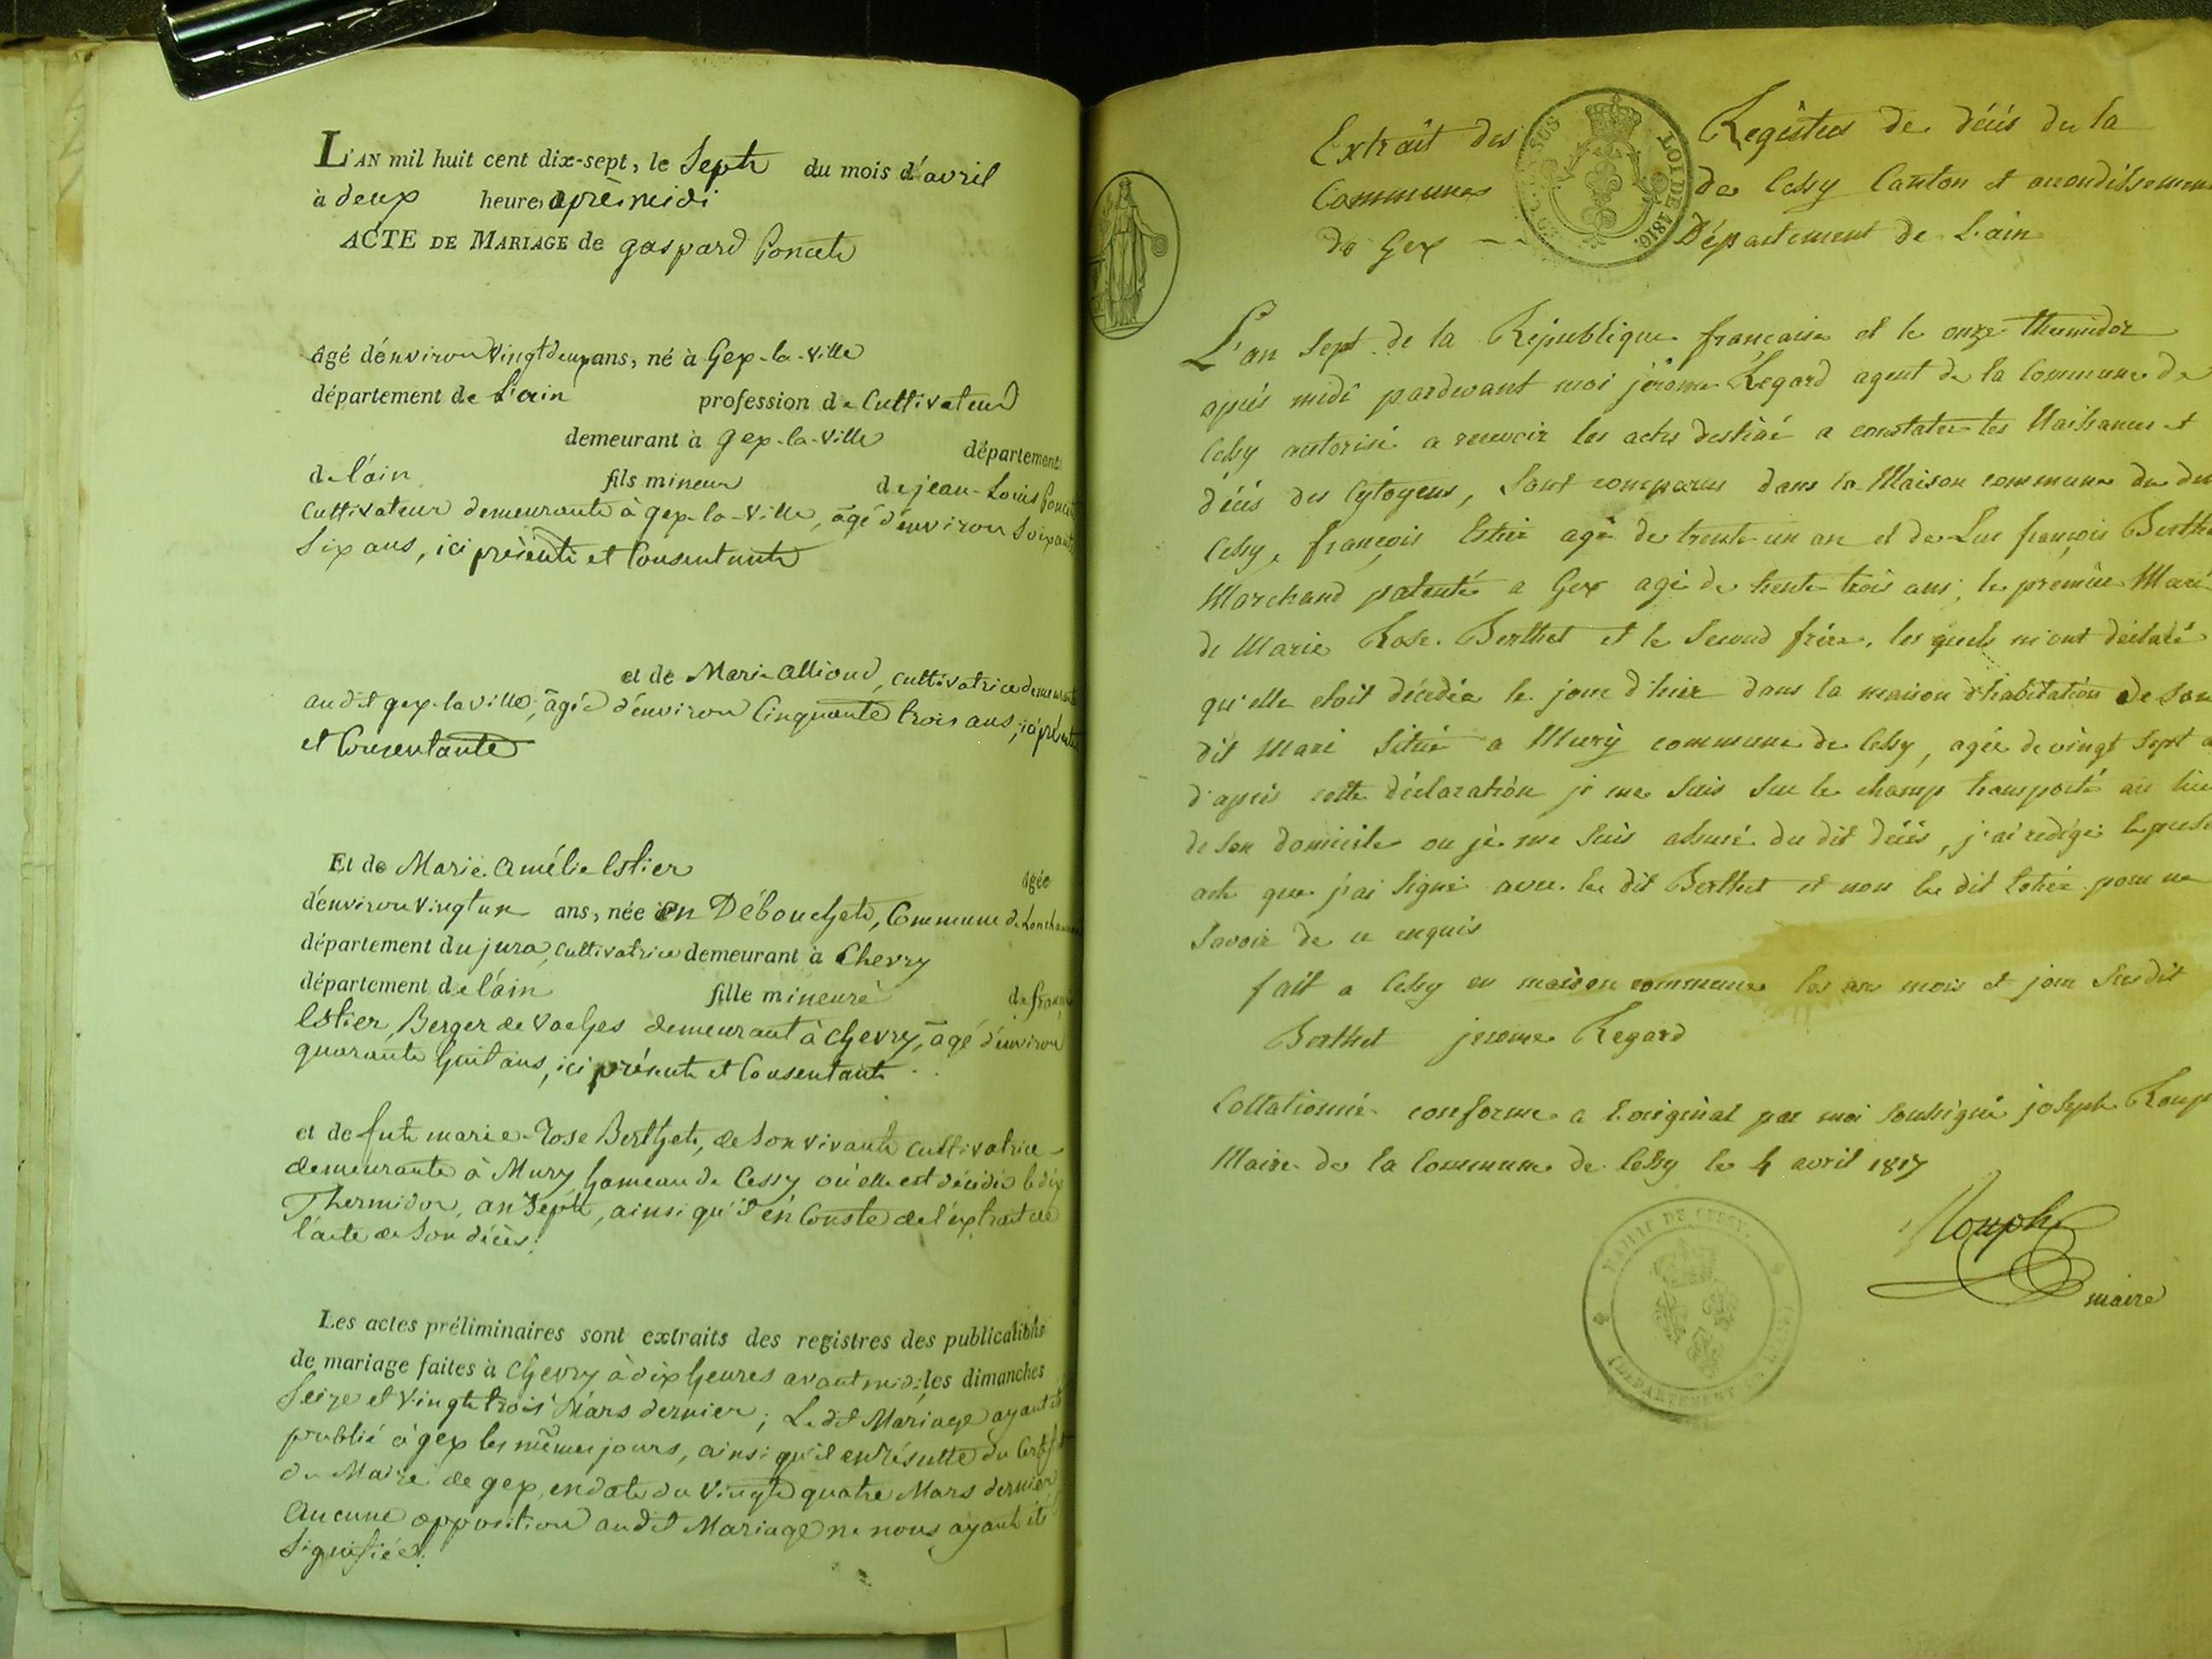 L'AN mil huit cent dix-sept, le Sept du mois d'avril
à deux heures après midi
ACTE DE MARIAGE de gaspard Poncet
âgé d'environ vingt deux ans, né à Gex-la-ville
département de L'ain profession de Cultivateur
demeurant à gex-la-ville département
de l'ain fils mineur de jean-Louis Poncet
Cultivateur demeurant à gex-la-ville, âgé d'environ Soixante
Six ans, ici présent et Consentant
et de Marie Alliond, cultivatrice demeurant
audit gex-la ville, âgée d'environ Cinquante trois ans, ici présente
et Consentante
Et de Marie Amélie Estier âgée
d'environ vingt un ans, née en Débouchet, Commune de
département du jura, cultivatrice demeurant à Chevry
département de l'ain fille mineure de françois
Estier, Berger de vaches demeurant à chevry, âgé d'environ
quarante huit ans, ici présent et Consentant
et de fut marie-Rose Berthet, de son vivant cultivatrice
demeurante à Mury hameau de Cessy où elle est décédée le dix
Thermidor, an Sept, ainsi qu'il en Conste de l'extrait de
l'acte de Son décès.
Les actes préliminaires sont extraits des registres des publications
de mariage faites à Chevry à dix heures avant midi, les dimanches
Seize et vingt trois Mars dernier; Le dit Mariage ayant été
publié à gex les mêmes jours, ainsi qu'il en résulte du Certificat
du Maire de gex, en date du vingt quatre Mars dernier
Aucune opposition audit Mariage ne nous ayant été
Signifiée.
Extrait des Registres de décès de la
Commune de Cessy Canton et arrondissement
de Gex -- Département de L'ain
LOI DE 1816.
L'an Sept de la République française et le onze thermidor
après midi pardevant moi jérome Regard agent de la Commune de
Cessy autorisé a recevoir les actes destiné a constater les Naissances et
décès des Cytoyens, Sont comparus dans la Maison commune du dit
Cessy, françois Estier agé de trente un an et de Luc françois Berthet
Marchand patenté a Gex agé de trente trois ans, le premier Mari
de Marie Rose Berthet et le Second frère, les quels m'ont déclaré
qu'elle etoit décédée le jour d'hier dans la maison d'habitation de Son
dit Mari Situé a Mury commune de Cessy, agée de vingt Sept
d'après cette déclaration je me Suis Sur le champ transporté au lieu
de Son domicile ou je me Suis assuré du dit décès, j'ai redigé le present
acte que j'ai Signé avec le dit Berthet et non le dit Estier pour ne
Savoir de ce enquis
fait a Cessy en maison commune les an mois et jour Susdit
Berthet jerome Regard
Collationné conforme a l'original par moi Soussigné joseph Rouph
Maire de la Commune de Cessy le 4 avril 1817
Rouph
maire
MAIRIE DE CESSY.
(DEPARTEMENT DE L'AIN)